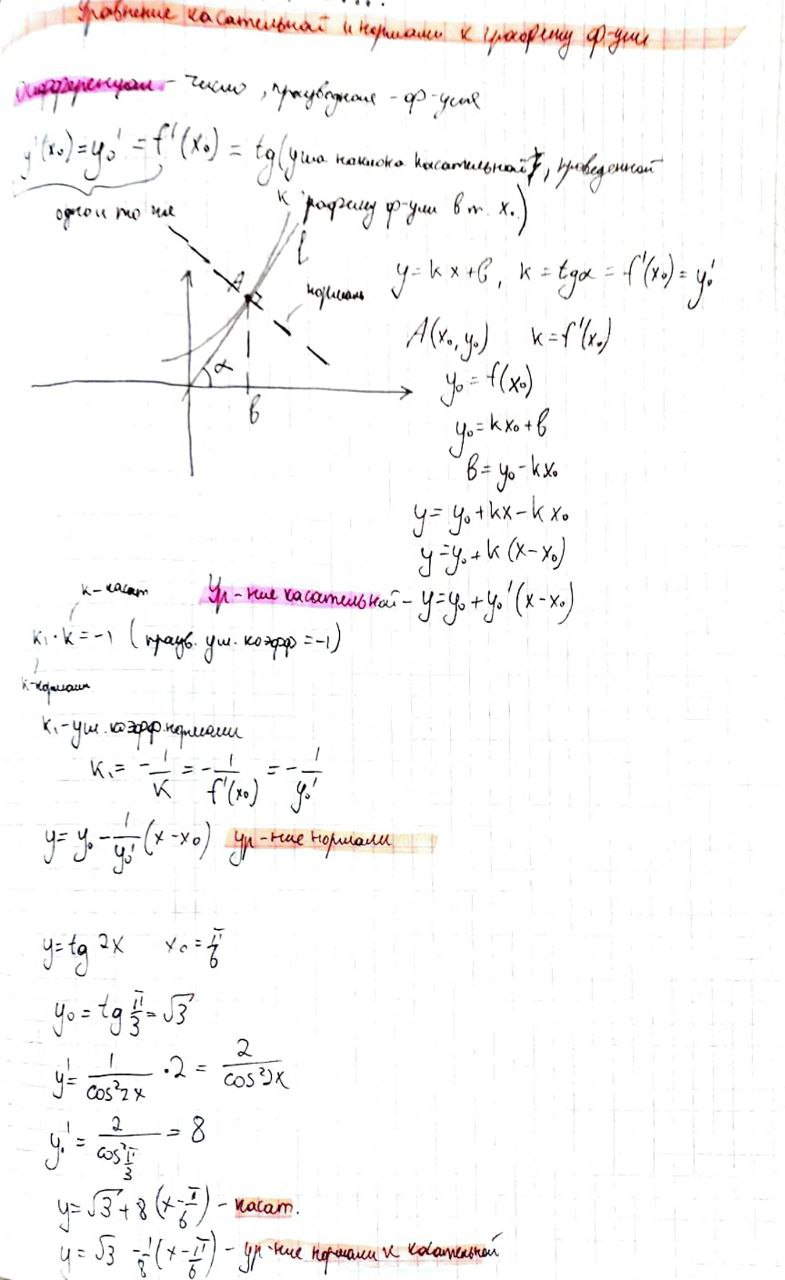 Уравнение касательной и нормали к графику ф-ции
Дифференциал - число, производная - ф-ция
y'(x₀) = y₀' = f'(x₀) = tg(угла наклона касательной, проведенной
к графику ф-ции в т. x₀)
одно и то же
l
A
нормаль
α
B
y = kx + b, k = tgα = f'(x₀) = y₀'
A(x₀, y₀) k = f'(x₀)
y₀ = f(x₀)
y₀ = kx₀ + b
b = y₀ - kx₀
y = y₀ + kx - kx₀
y = y₀ + k(x - x₀)
Ур-ние касательной - y = y₀ + y₀'(x - x₀)
k - касат
k₁ · k = -1 (произв. угл. коэфф = -1)
k-нормали
k₁ - угл. коэфф. нормали
k₁ = -1/k = -1/f'(x₀) = -1/y₀'
y = y₀ - 1/y₀' (x - x₀) ур-ние нормали
y = tg 2x x₀ = π/6
y₀ = tg π/3 = √3
y' = 1/cos²2x · 2 = 2/cos²2x
y₀' = 2/cos² π/3 = 8
y = √3 + 8(x - π/6) - касат.
y = √3 - 1/8 (x - π/6) - ур-ние нормали к касательной